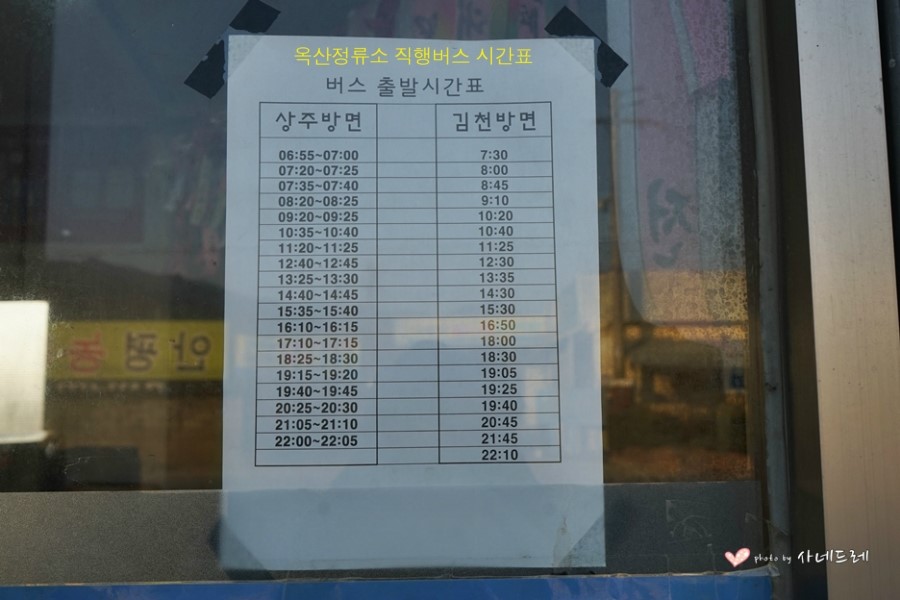 옥산정류소 직행버스 시간표
버스 출발시간표
상주방면 김천방면
06:55~07:00 7:30
07:20~07:25 8:00
07:35~07:40 8:45
08:20~08:25 9:10
09:20~09:25 10:20
10:35~10:40 10:40
11:20~11:25 11:25
12:40~12:45 12:30
13:25~13:30 13:35
14:40~14:45 14:30
15:35~15:40 15:30
16:10~16:15 16:50
17:10~17:15 18:00
18:25~18:30 18:30
19:15~19:20 19:05
19:40~19:45 19:25
20:25~20:30 19:40
21:05~21:10 20:45
22:00~22:05 21:45
22:10
photo by 사네드레